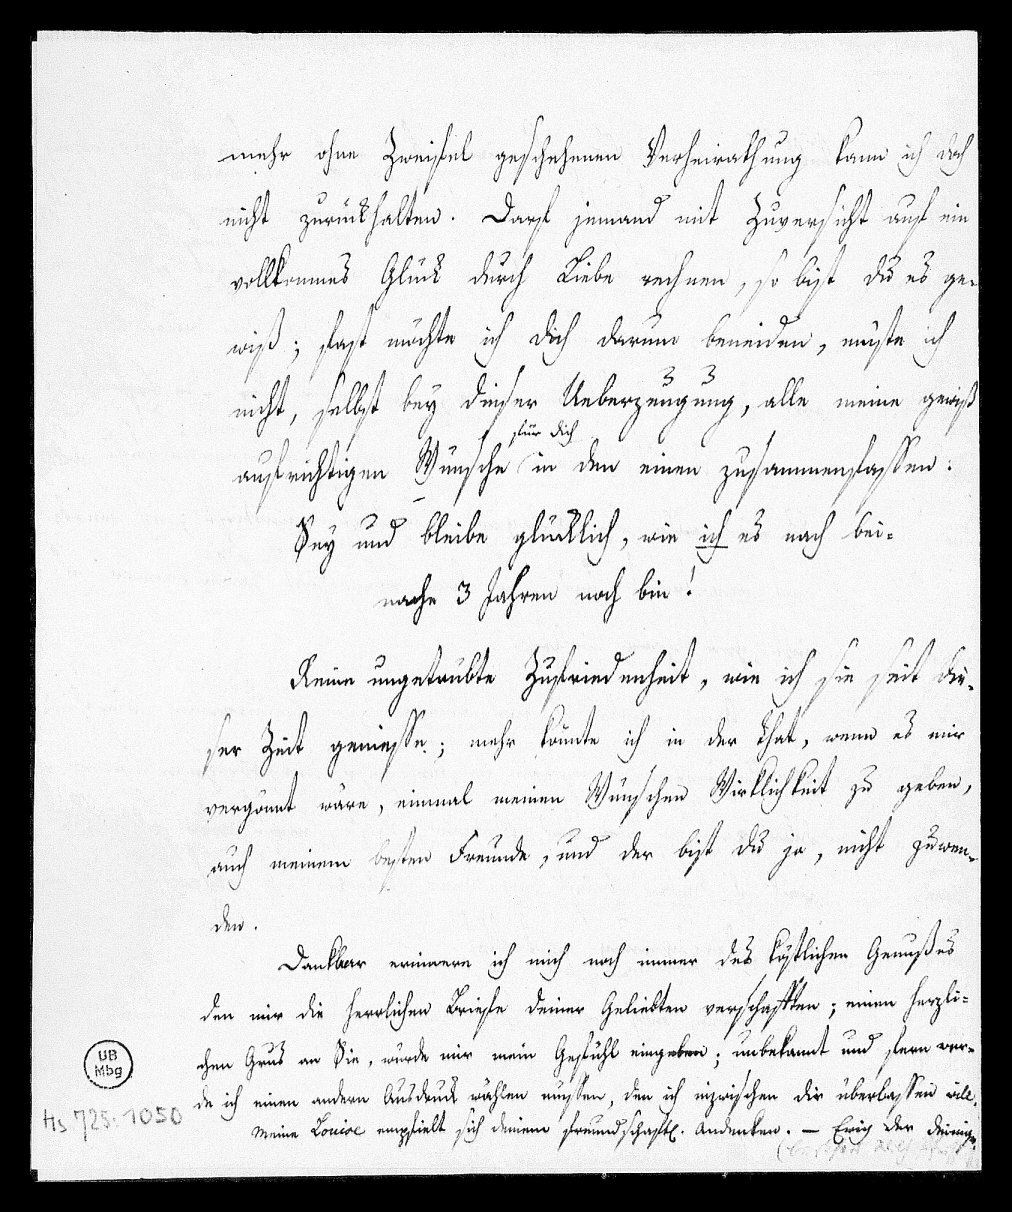 mehr ohne Zweifel geschehenen Verheirathung kann ich doch
nicht zurückhalten. Darf jemand mit Zuversicht auf ein
vollkommes Glück durch Liebe rechnen, so bist du es ge-
wiß; fast möchte ich dich darum beneiden, müste ich
nicht, selbst bey dieser Ueberzeugung, alle meine gewiß
für dich
aufrichtigen Wünsche in den einen zusammenfassen:
Sey und bleibe glücklich, wie ich es nach bei-
nahe 3 Jahren noch bin!
Reine ungetrübte Zufriedenheit, wie ich sie seit die-
ser Zeit geniesse; mehr könnte ich in der That, wenn es mir
vergönnt wäre, einmal meinen Wünschen Wirklichkeit zu geben,
auch meinem besten Freunde, und der bist du ja, nicht zuwen-
den.
Dankbar erinnere ich mich noch immer des köstlichen Genußes
den mir die herrlichen Briefe deiner Geliebten verschafften; einen herzli-
chen Grus an Sie, würde mir mein Gefühl eingeben; unbekannt und fern wer-
de ich einen andern Ausdruck wählen müssen, den ich inzwischen dir überlassen will.
Meine Louise empfielt sich deinem freundschaftl. Andenken. — Ewig der deinige
UB
Mbg
Hs 725:1050